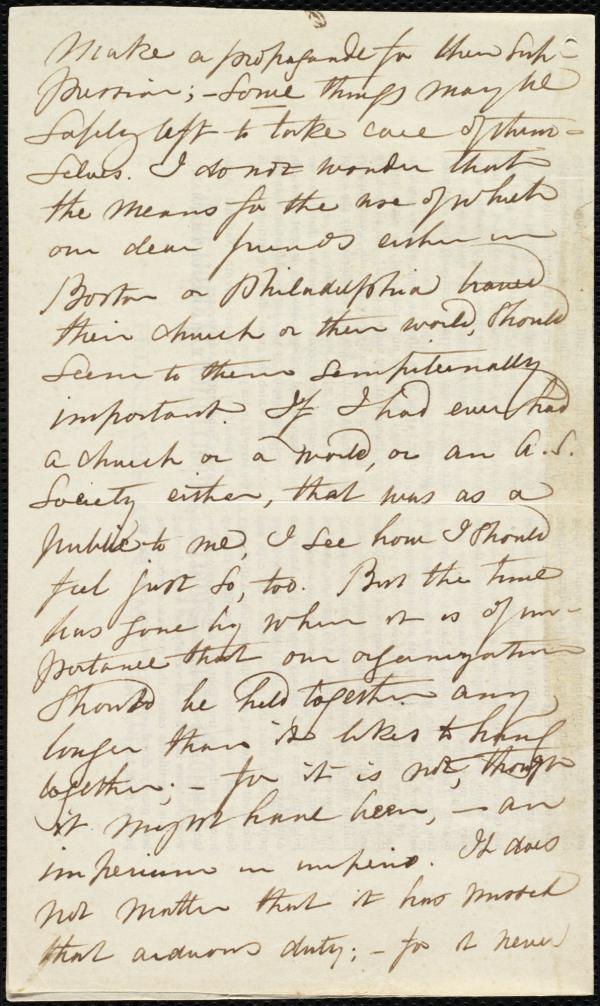 make a propaganda for their sup-
pression; – Some things may be
safely left to take care of them-
selves. I do not wonder that
the means for the use of which
our dear friends either in
Boston or Philadelphia braved
their church or their world, should
seem to them sempiternally
important. If I had ever had
a church or a world, or an A. S.
Society either, that was as a
public to me, I see how I should
feel just so, too. But the time
has gone by when it is of im-
portance that our organization
should be held together any
longer than it likes to hang
together; – for it is not, though
it might have been, – an
imperium in imperio. It does
not matter that it has missed
that arduous duty; – for it never